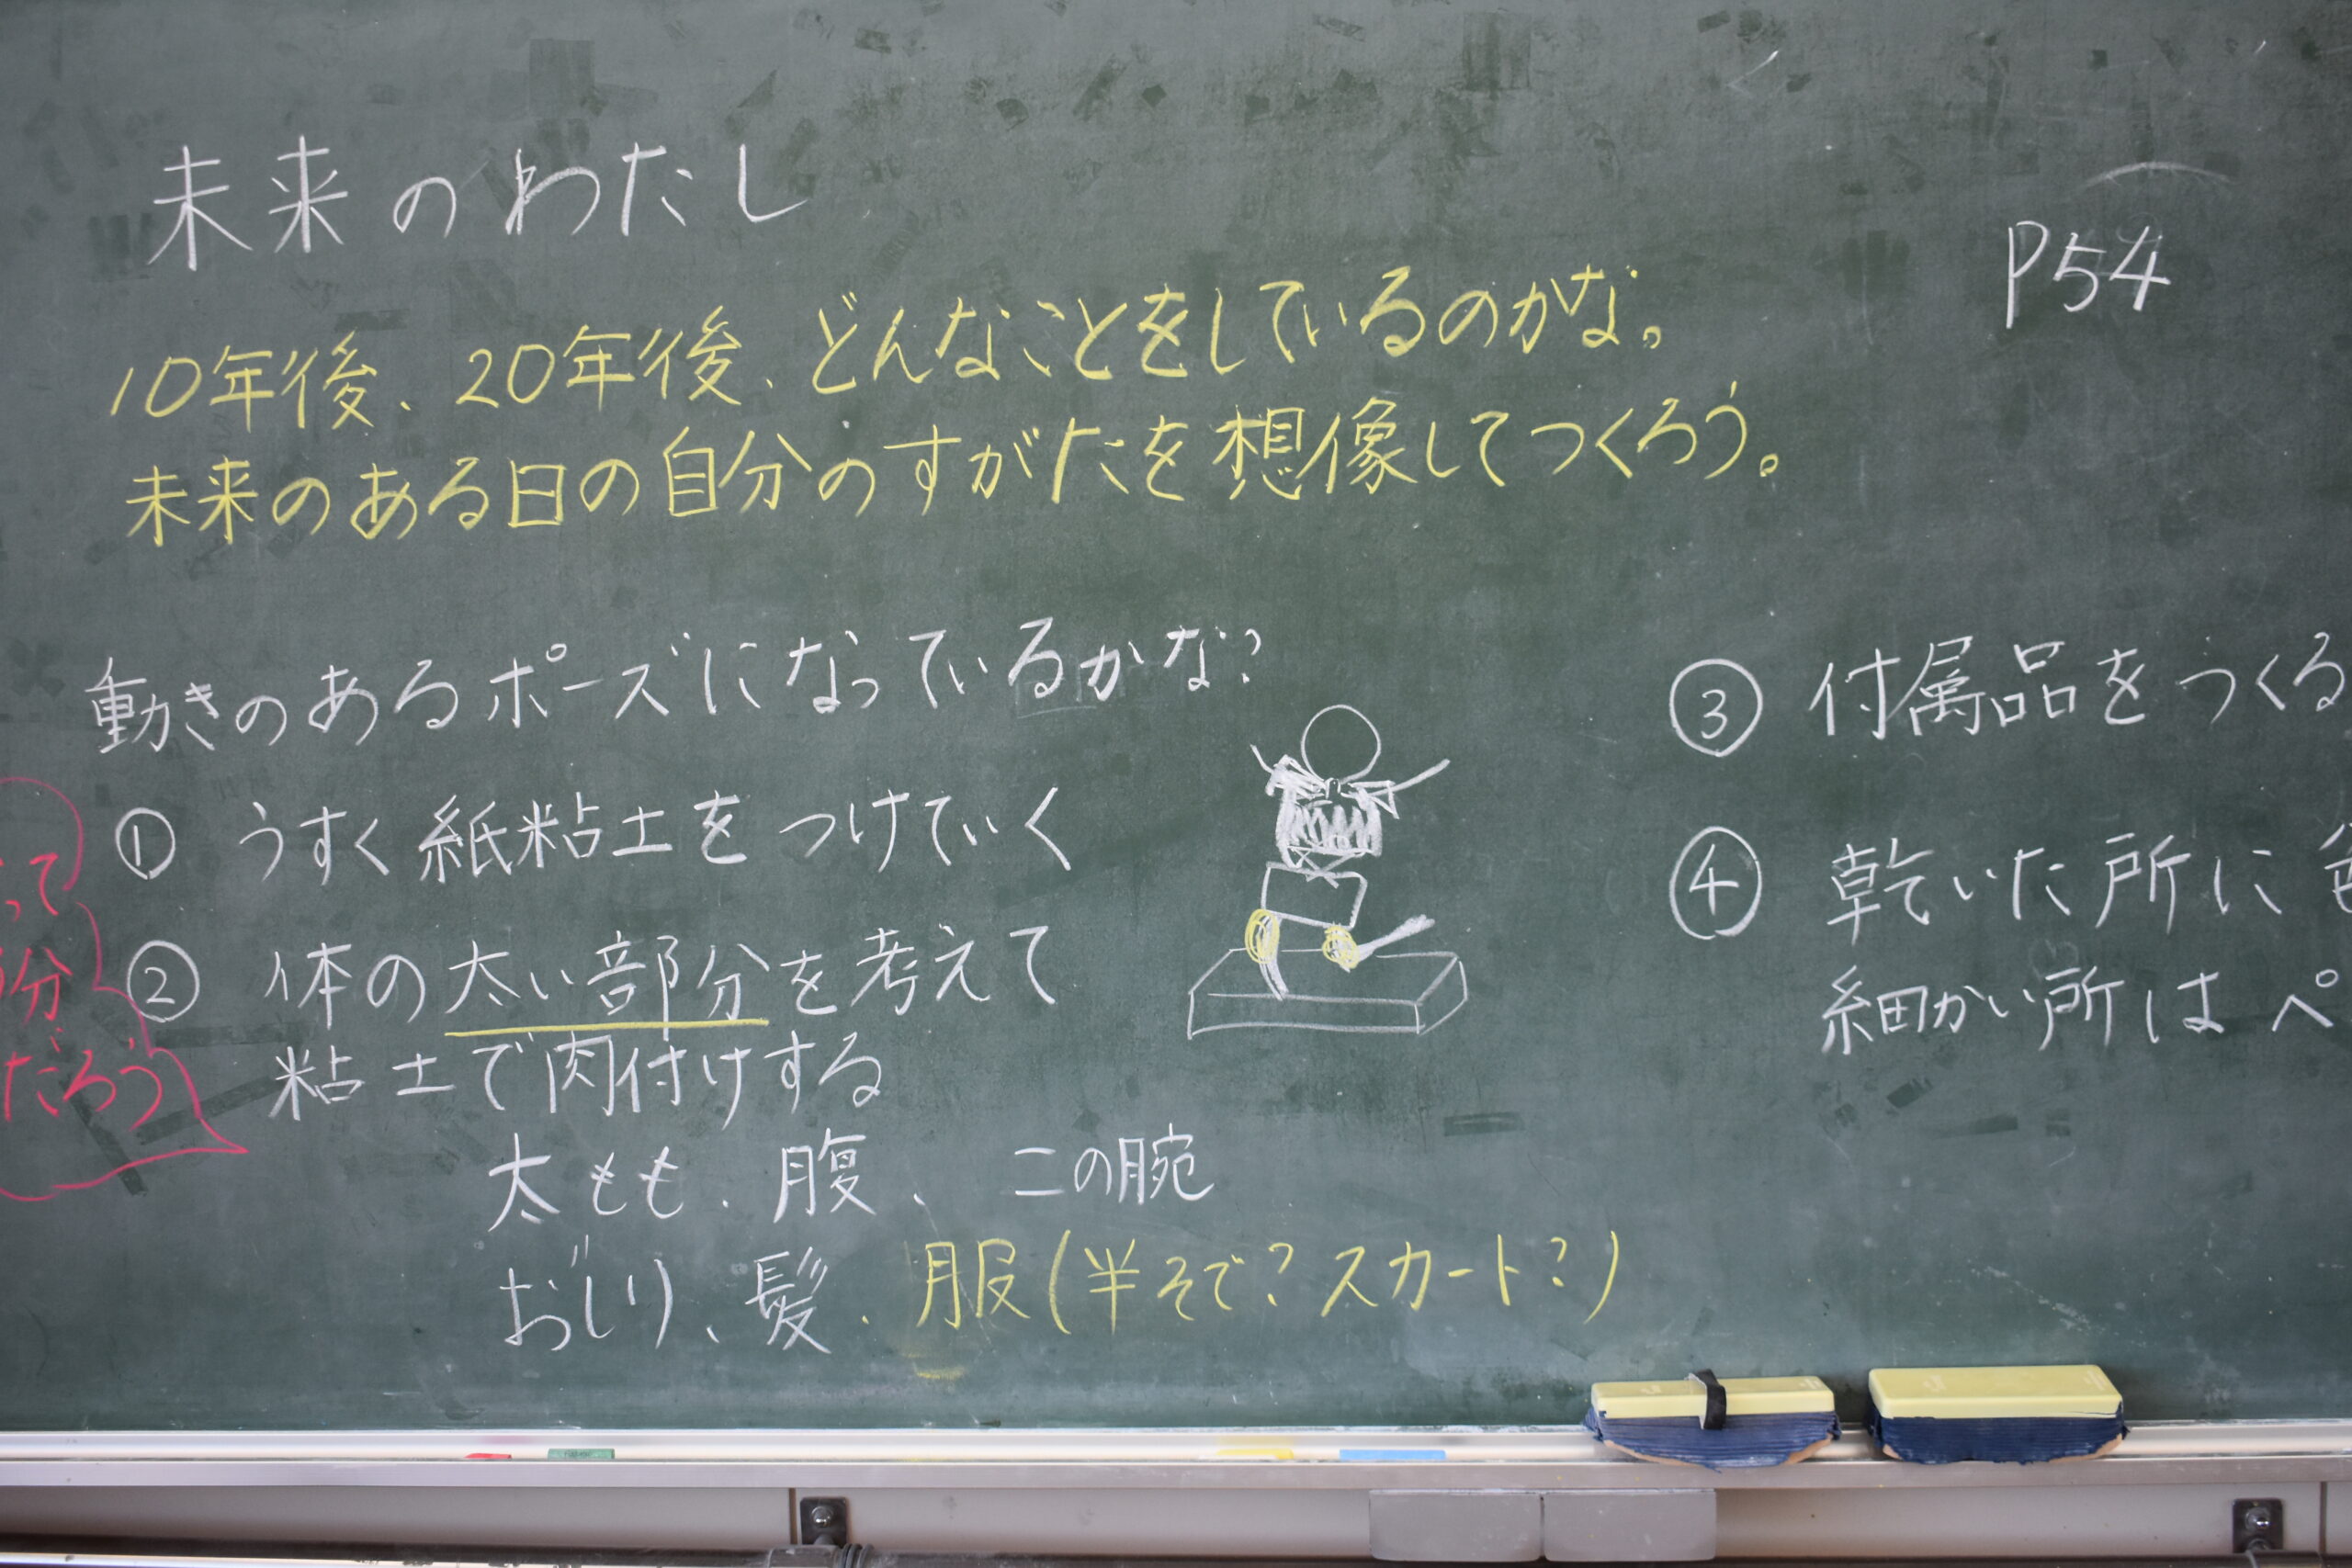 未来のわたし
P54
10年後、20年後、どんなことをしているのかな。
未来のある日の自分のすがたを想像してつくろう。
動きのあるポーズになっているかな?
① うすく紙粘土をつけていく
② 体の太い部分を考えて
粘土で肉付けする
太もも、腹、二の腕
おしり、髪、服(半そで?スカート?)
③ 付属品をつくる
④ 乾いた所に色
細かい所はペ
って
分
だろう